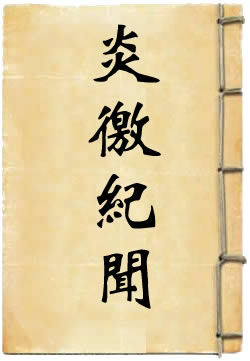 炎徼紀聞